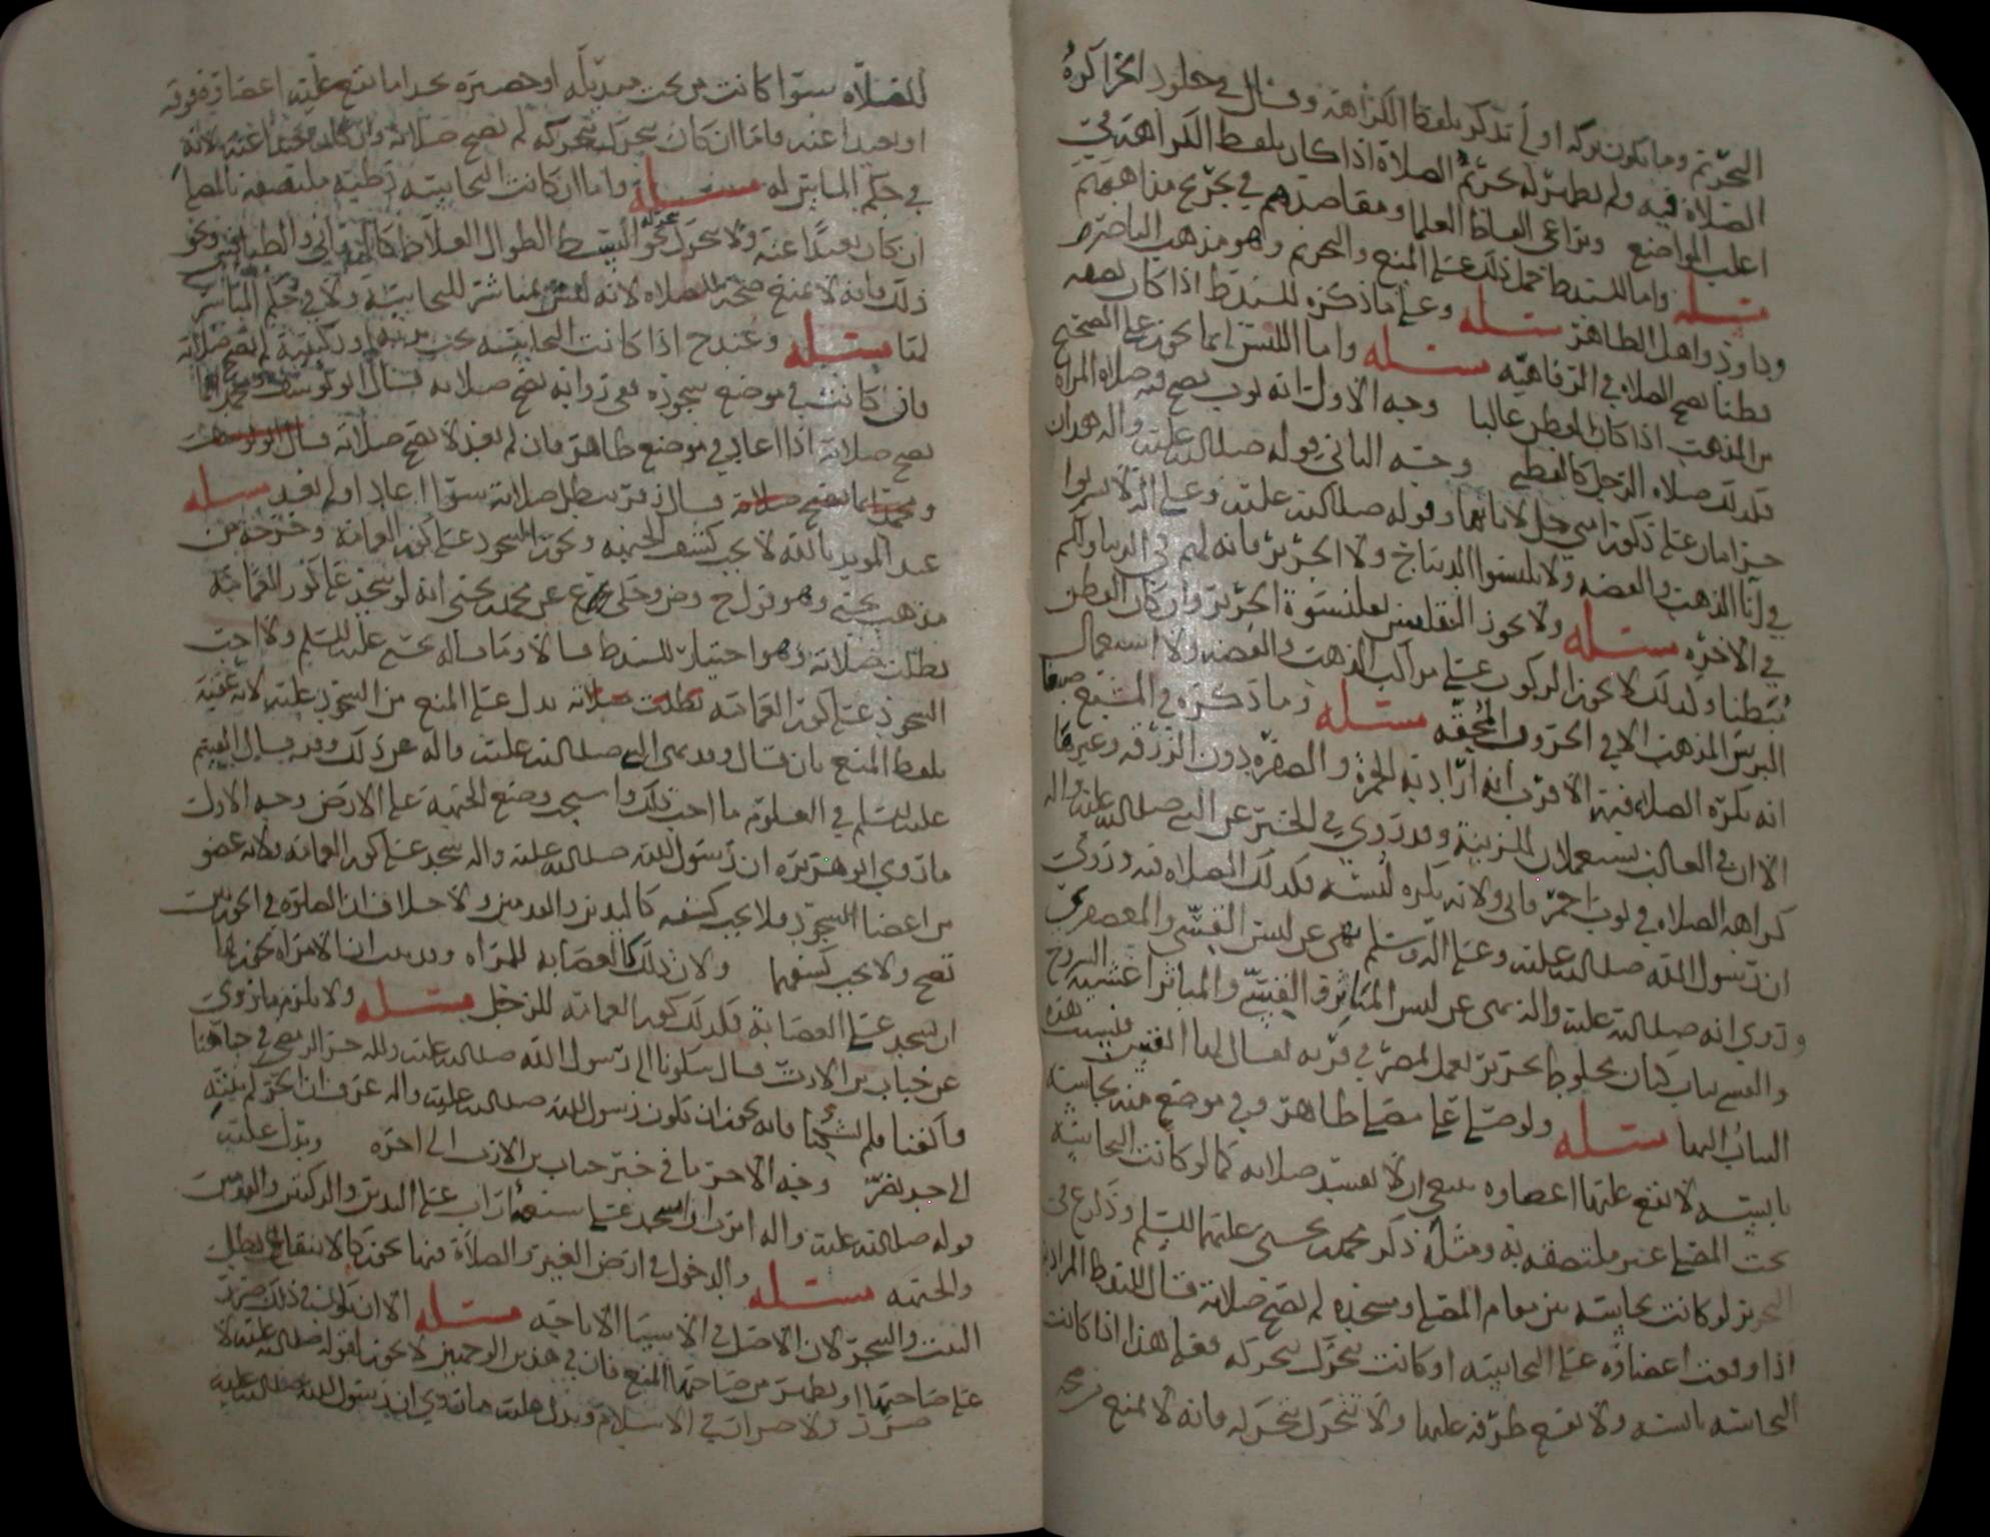 التحريم وما يكون تركه أولى تذكر بلفظ الكراهة وقال في جلود الخز اكره
الصلاة فيه ولم يطهر له تحريم الصلاة اذا كان بلفظ الكراهة في
اغلب المواضع ويراعى الفاظ العلما ومقاصدهم في تخريج مذاهبهم
مسئله واما السيد ط حمل ذلك على المنع والتحريم وهو مذهب الناصر
وداود واهل الظاهر مسئله وعلى ما ذكره السيد ط اذا كان نصفه
قطنا تصح الصلاه في الرفاهيه مسئله واما اللبس انما يجوز على الصحيح
من المذهب اذا كان القطن غالبا وجه الاول انه ثوب تصح فيه صلاه المراه
فكذلك صلاه الرجل كالقطن وجه الثاني قوله صلى الله عليه واله هذان
حرامان على ذكور امتي حل لاناثها وقوله صلى الله عليه وعلى اله لا تشربوا
في انا الذهب والفضه ولا تلبسوا الديباج ولا الحرير فانه لهم في الدنيا ولكم
في الاخره مسئله ولا يجوز التقلنس بقلنسوة الحرير وان كان القطن
مبطنا ولذلك لا يجوز الركوب على مراكب الذهب والفضه ولا استعمال
البرس المذهب الا في الحروف المحقه مسئله وما ذكره في المشبع صبغا
انه تكره الصلاه فيه الاقرب انه اراد به الحمرة والصفره دون الزرقه وغيرها
الا ان في الغالب يستعملان للزينة وقد روي في الخبر عن النبي صلى الله عليه واله
كراهه الصلاه في ثوب احمر ولانه يكره لبسه فكذلك الصلاه فيه وروي
ان رسول الله صلى الله عليه وعلى اله وسلم نهى عن لبس القسي والمعصفر
وروي انه صلى الله عليه واله نهى عن لبس المياثر والقسي
والقسي ثياب كتان مخلوط بحرير يعمل بمصر في قريه يقال لها القس فنسبت هذه
الثياب اليها مسئله ولو صلى على مصلى طاهر وفي موضع منه نجاسه
يابسه لا تقع عليها اعضاوه ينبغي ان لا تفسد صلاته كما لو كانت النجاسه
تحت المصلى غير ملتصقه به ومثله ذكر محمد بن يحيى عليهما السلم
لو كانت نجاسه بين مقام المصلى ومسجده لم تصح صلاته قال السيد ط المراد به
اذا وقعت اعضاوه على النجاسه او كانت تتحرك بتحركه فعلى هذا اذا كانت
النجاسه يابسه ولا تقع طرفه عليها ولا تتحرك بتحركه فانه لا يمنع من صحه
الصلاه سوا كانت من تحت منديله او حصيره بحذا ما تقع عليه اعضاوه فوقه
او بعيدا عنه فاما ان كان يتحرك بتحركه لم تصح صلاته وان كان بعيدا عنه لانه
في حكم المباشر له مسئلة واما ان كانت النجاسه رطبه ملتصقه بالمصلى
ان كان بعيدا عنه ولا يتحرك بتحركه نحو البسط الطوال الغلاظ والطنافس ونحو
ذلك فانه لا يمنع صحة الصلاه لانه ليس بمباشر للنجاسة ولا في حكم المباشر
لها مسئله وعند ح اذا كانت النجاسه تحت يديه او ركبتيه لم تصح صلاته
فان كانت في موضع سجوده فعن انه تصح صلاته قال ابو يوسف ومحمد انما
تصح صلاته اذا اعاد في موضع طاهر فان لم يعد لا تصح صلاته قال ابو يوسف
ومحمد انما تصح صلاة قال زفر تبطل صلاته سوا اعاد او لم يعد مسئله
عند المويد بالله لا يجب كشف الجبهه ويجوز السجود على كور العمامة وخرجه من
مذهب يحيى وهو قول ح وص وحكى ع عن محمد بن يحيى انه لو سجد على كور العمامه
بطلت صلاته وهو اختيار السيد ط قالا وما قاله يحيى عليه السلم ولا احب
السجود على كور العمامه بطلت صلاته يدل على المنع من السجود عليه لانه عقبه
بلفظ المنع بان قال وقد نهى النبي صلى الله عليه واله عن ذلك وقد قال القسم
عليه السلم في العلوم ما احب ذلك واستحب وضع الجبهة على الارض وجه الاول
ما روي ابو هريره ان رسول الله صلى الله عليه واله سجد على كور العمامه ولانه عضو
من اعضا السجود فلا يجب كشفه كاليدين والقدمين ولا خلاف ان الصلوه في الجوربين
تصح ولا يجب كشفهما ولان ذلك كالعصابه للمراه وقد بينا ان الامراه يجوز لها
ان تسجد على العصابة فكذلك كور العمامه للرجل مسئله ولا يلزم ما روي
عن خباب بن الارت قال شكونا الى رسول الله صلى الله عليه واله حر الرمضى في جباهنا
واكفنا فلم يشكنا فانه يجوز ان يكون رسول الله صلى الله عليه واله عرف ان الحر لم يبلغ
الى حد يضر وجه الاخر ما في خبر خباب بن الارت الى اخره ويدل عليه
قوله صلى الله عليه واله امرت ان اسجد على سبعة اراب على اليدين والركبتين والقدمين
والجبهه مسئله والدخول في ارض الغير والصلاة فيها يجوز كالانتفاع بظل
البيت والشجر لان الاصل في الاشيا الاباحه مسئله الا ان يكون في ذلك ضرر
على صاحبها او يظهر من صاحبها المنع فان في هذين الوجهين لا يجوز لقوله صلى الله عليه لا
ضرر ولا ضرار في الاسلام ويدل عليه ما روي ان رسول الله صلى الله عليه